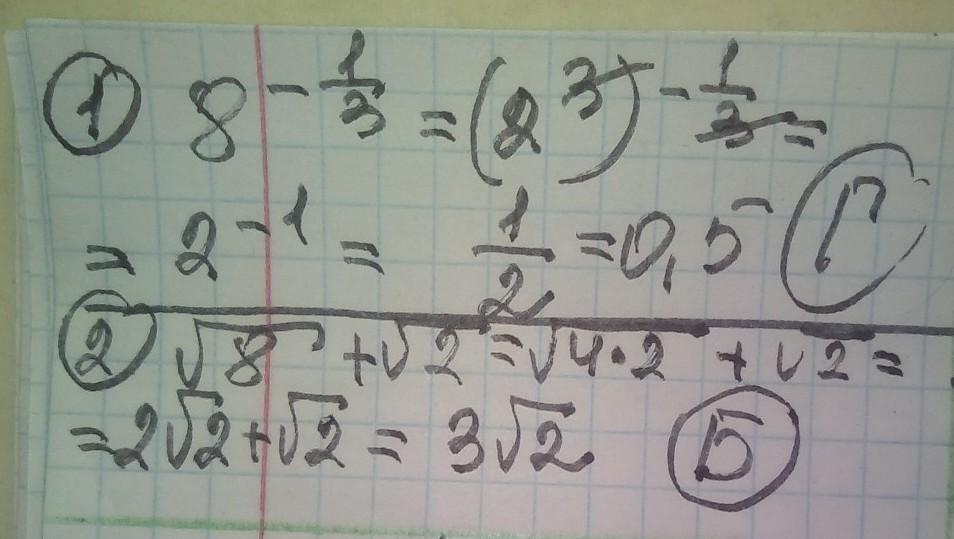 ① 8^{-\frac{1}{3}} = (2^3)^{-\frac{1}{3}} =
= 2^{-1} = \frac{1}{2} = 0,5 Г
② √8 + √2 = √4·2 + √2 =
= 2√2 + √2 = 3√2 Б